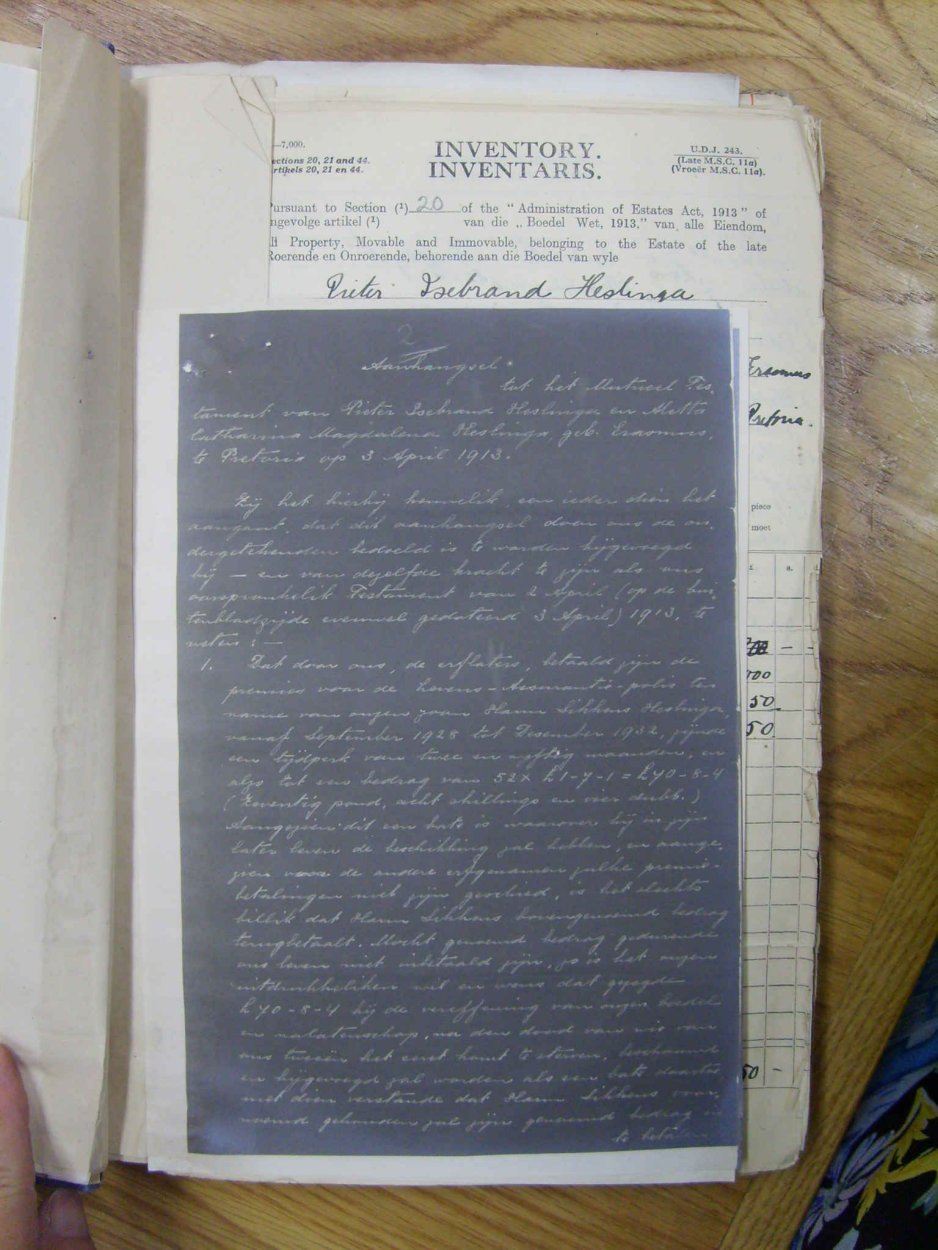 —7,000.
ections 20, 21 and 44.
rtikels 20, 21 en 44.
INVENTORY.
INVENTARIS.
U.D.J. 243.
(Late M.S.C. 11a)
(Vroeër M.S.C. 11a).
Pursuant to Section (¹) 20 of the “Administration of Estates Act, 1913” of
ngevolge artikel (¹) van die „Boedel Wet, 1913,” van alle Eiendom,
ll Property, Movable and Immovable, belonging to the Estate of the late
Roerende en Onroerende, behorende aan die Boedel van wyle
Pieter Isebrand Heslinga
Erasmus
Pretoria.
piece
moet
£ s. d.
000
50
50
50 -
2
Aanhangsel
tot het Mutueel Tes-
tament van Pieter Isebrand Heslinga en Aletta
Catharina Magdalena Heslinga, geb. Erasmus,
te Pretoria op 3 April 1913.
Zij het hierbij kennelik een ieder dien het
aangaat, dat dit aanhangsel door ons de on-
dergetekenden bedoeld is te worden bijgevoegd
bij — en van dezelfde kracht te zijn als ons
oorspronkelik Testament van 2 April (op de bui-
tenbladzijde evenwel gedateerd 3 April) 1913, te
weten :—
1. Dat door ons, de erflaters, betaald zijn de
premies voor de Levens-Assurantie-polis ten
name van onzen zoon Harm Sikkens Heslinga,
vanaf September 1928 tot Desember 1932, zijnde
een tijdperk van twee en vijftig maanden, en
alzo tot een bedrag van 52 x £1-7-1 = £70-8-4
(Zeventig pond, acht shillings en vier dubb.)
Aangezien dit een bate is waarover hij in zijn
later leven de beschikking zal hebben, en aange-
zien voor de andere erfgenamen zulke premie-
betalingen niet zijn geschied, is het slechts
billik dat Harm Sikkens bovengenoemd bedrag
terugbetaalt. Mocht genoemd bedrag gedurende
ons leven niet inbetaald zijn, zo is het onzen
uitdrukkeliken wil en wens dat gezegde
£70-8-4 bij de vereffening van onzen boedel
en nalatenschap, na den dood van wie van
ons tweeën het eerst komt te sterven, beschouwd
en bijgevoegd zal worden als een bate daartoe
met dien verstande dat Harm Sikkens voor-
noemd gehouden zal zijn genoemd bedrag in
te betalen